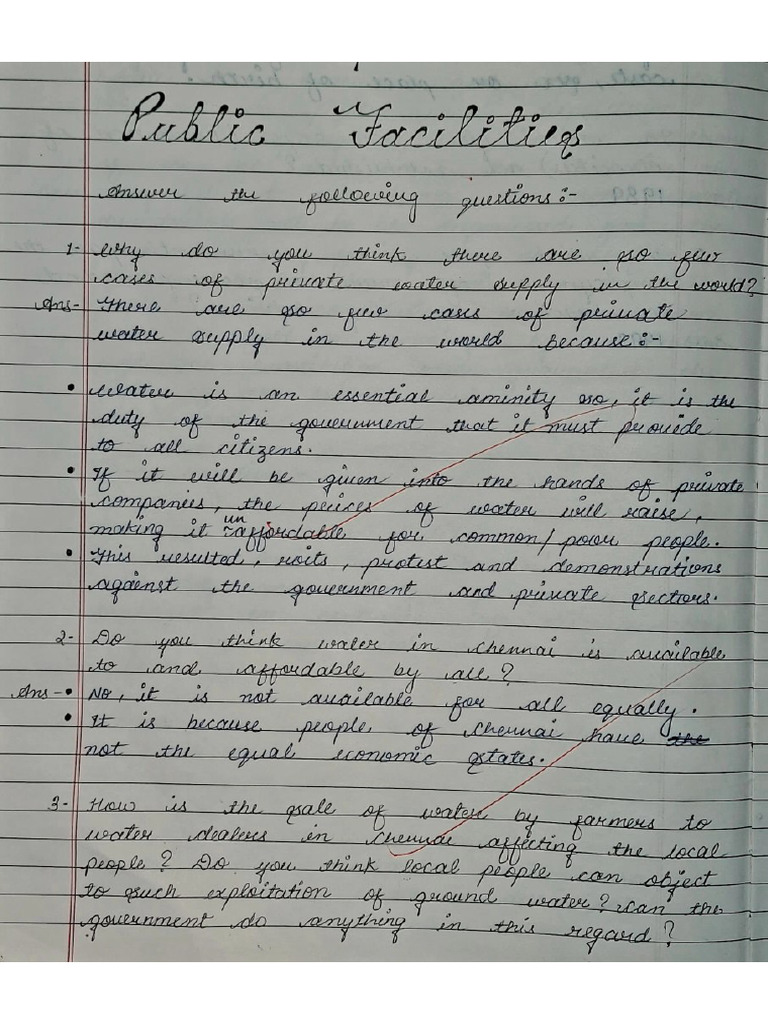 Public Facilities
Answer the following questions:-
1- Why do you think there are so few
cases of private water supply in the world?
Ans- There are so few cases of private
water supply in the world because:-
• Water is an essential aminity so, it is the
duty of the government that it must provide
to all citizens.
• If it will be given into the hands of private
companies, the prices of water will raise,
making it unaffordable for common/poor people.
• This resulted, roits, protest and demonstrations
against the government and private sectors.
2- Do you think water in Chennai is available
to and affordable by all?
Ans- • No, it is not available for all equally.
• It is because people of Chennai have the
not the equal economic states.
3- How is the sale of water by farmers to
water dealers in Chennai affecting the local
people? Do you think local people can object
to such exploitation of ground water? Can the
government do anything in this regard?